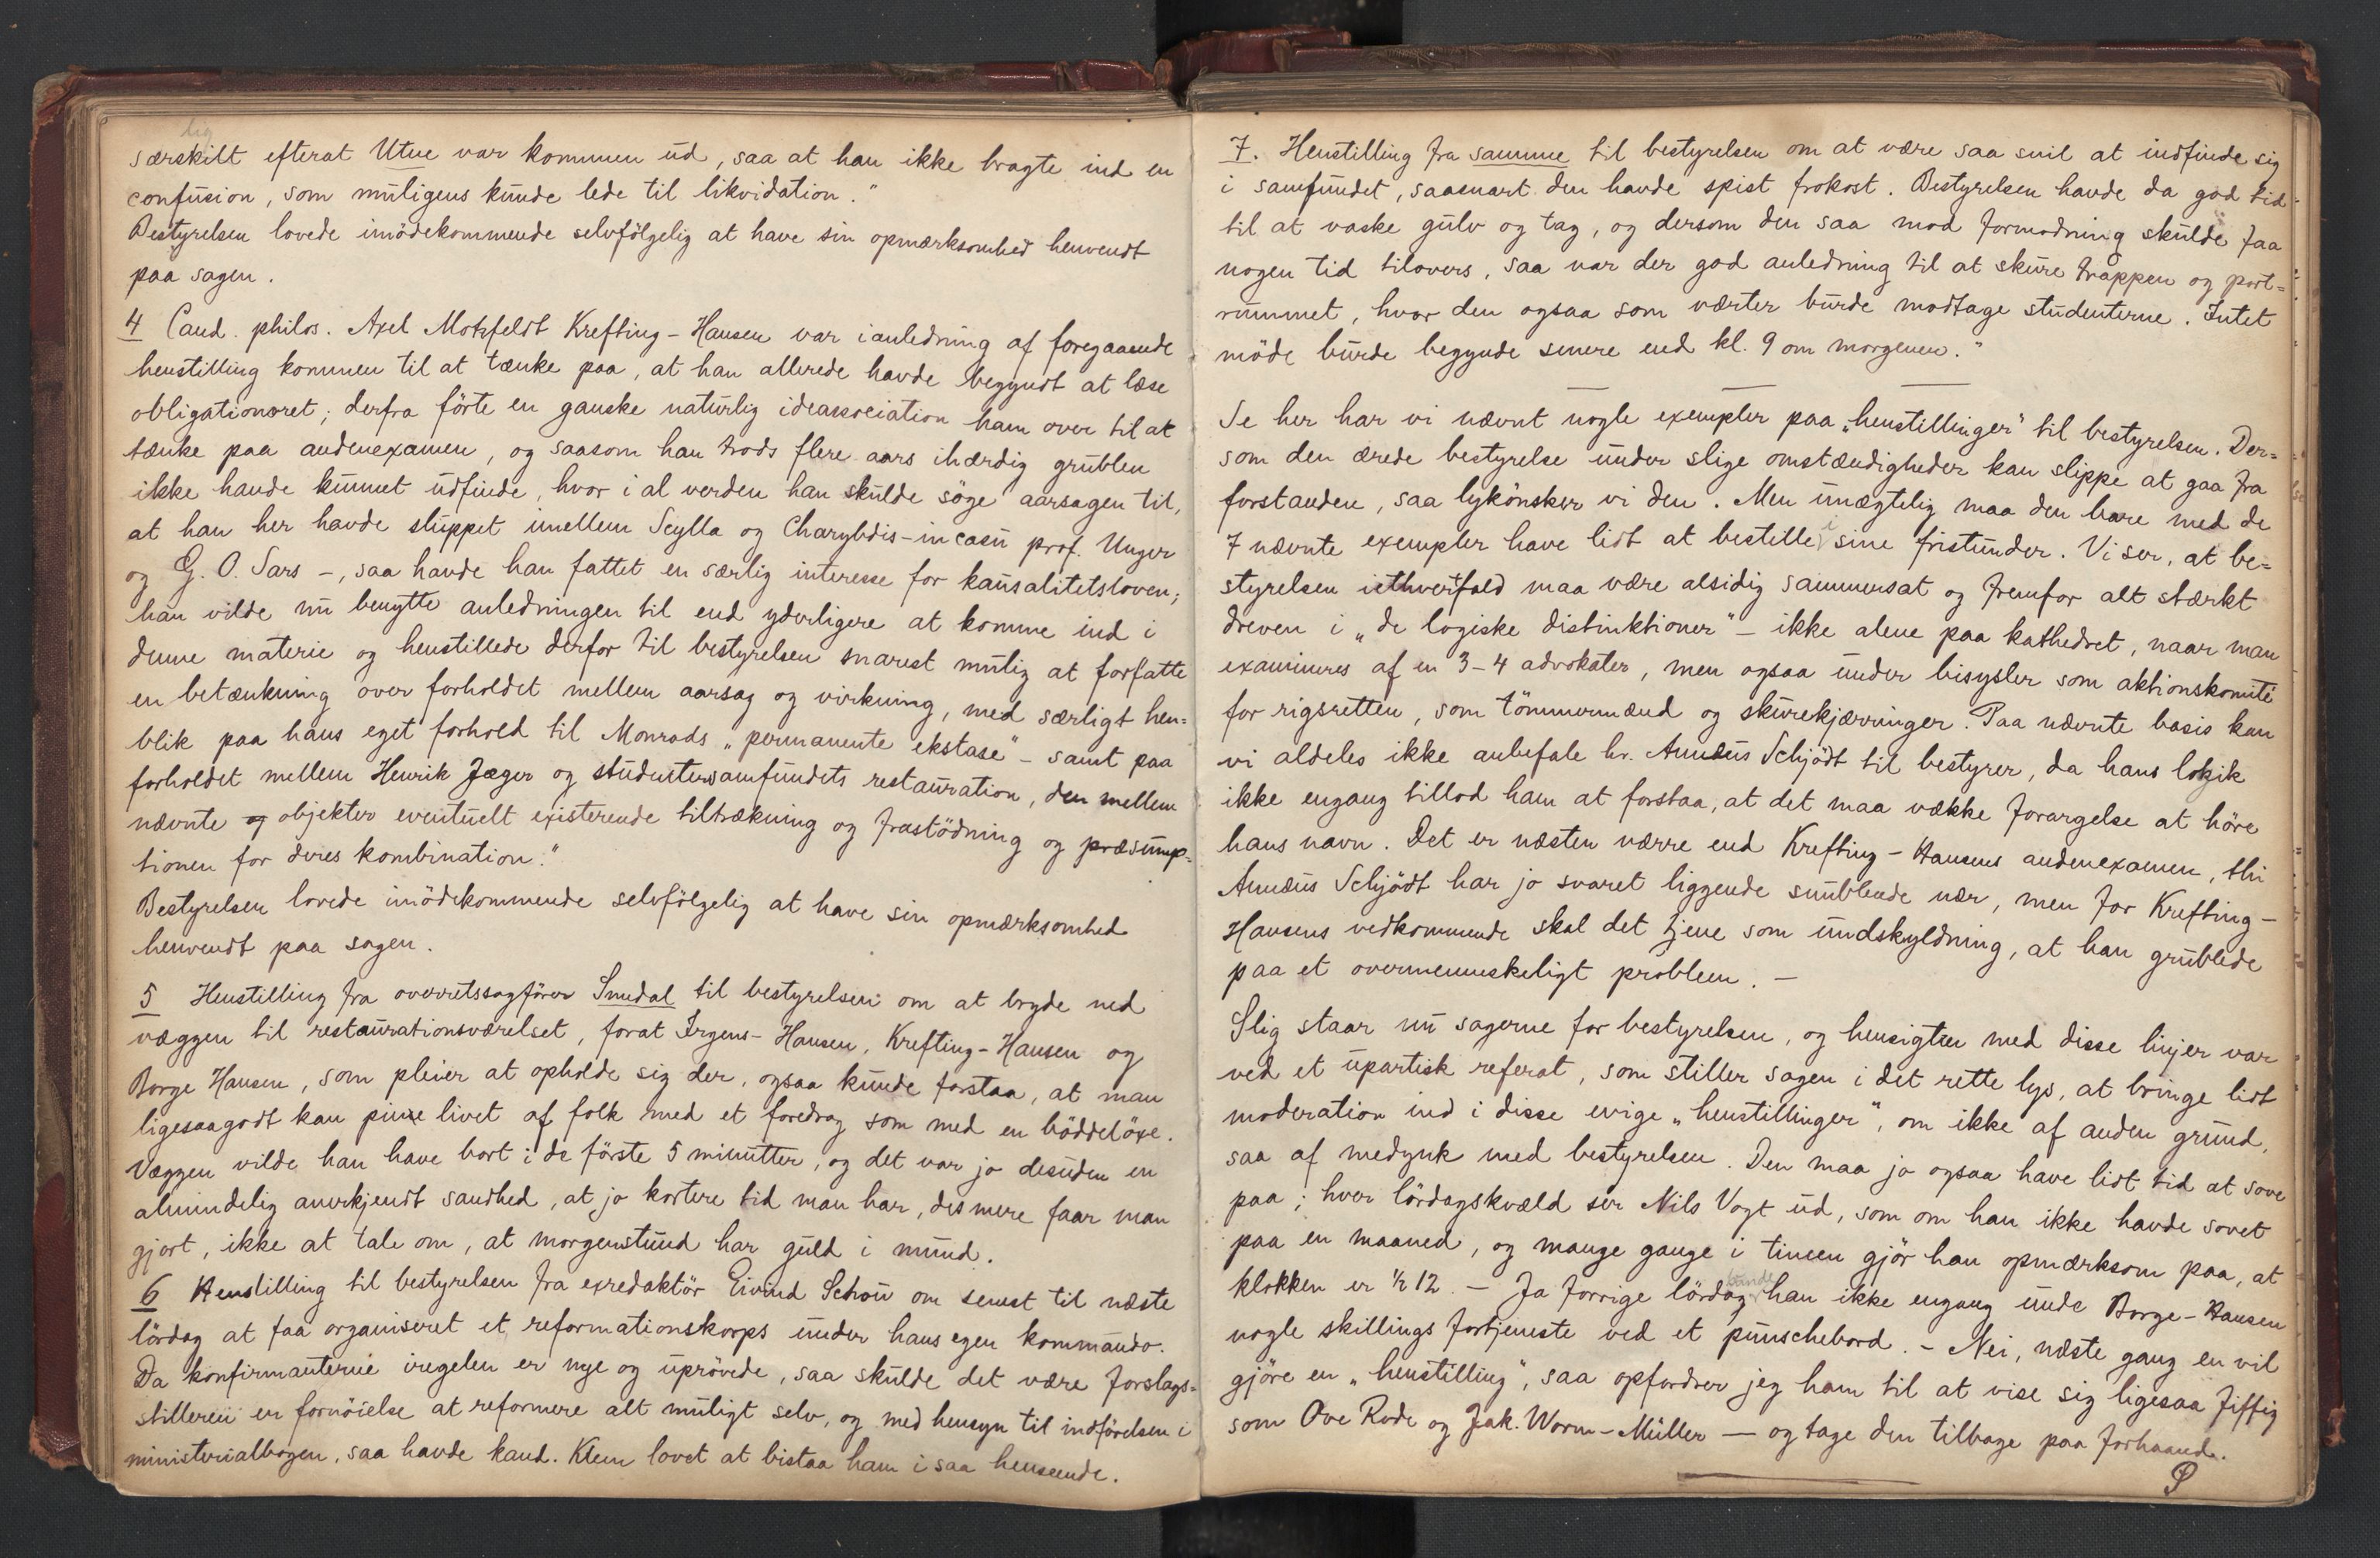 lig
særskilt efterat Utne var kommen ud, saa at han ikke bragte ind en
confusion, som muligens kunde lede til likvidation."
Bestyrelsen lovede imödekommende selvfölgelig at have sin opmærksomhed henvendt
paa sagen.
4 Cand. philos. Axel Motzfeldt Krefting-Hansen var ianledning af foregaaende
henstilling kommen til at tænke paa, at han allerede havde begyndt at læse
obligationsret; derfra förte en ganske naturlig ideassociation ham over til at
tænke paa andenexamen, og saasom han trods flere aars ihærdig grublen
ikke havde kunnet udfinde, hvor i al verden han skulde söge aarsagen til,
at han her havde sluppet imellem Scylla og Charybdis - in casu prof. Unger
og G. O. Sars -, saa havde han fattet en særlig interesse for kausalitetsloven;
han vilde nu benytte anledningen til end yderligere at komme ind i
denne materie og henstillede derfor til bestyrelsen snarest mulig at forfatte
en betænkning over forholdet mellem aarsag og virkning, med særligt hen=
blik paa hans eget forhold til Monrads „permanente ekstase" - samt paa
forholdet mellem Henrik Jæger og studentersamfundets restauration, den mellem
nævnte og objekter eventuelt existerende tiltrækning og frastödning og præsump=
tionen for deres kombination."
Bestyrelsen lovede imödekommende selvfölgelig at have sin opmærksomhed
henvendt paa sagen.
5 Henstilling fra overretssagförer Smedal til bestyrelsen om at bryde ned
væggen til restaurationsværelset, forat Irgens-Hansen, Krefting-Hansen og
Borge Hansen, som pleier at opholde sig der, ogsaa kunde forstaa, at man
ligesaagodt kan pine livet af folk med et foredrag som med en böddelöxe.
Væggen vilde han have bort i de förste 5 minutter, og det var jo desuden en
almindelig anerkjendt sandhed, at jo kortere tid man har, des mere faar man
gjort, ikke at tale om, at morgenstund har guld i mund.
6 Henstilling til bestyrelsen fra exredaktör Eivind Schou om senest til næste
lördag at faa organiseret et reformationskorps under hans egen kommando.
Da konfirmanterne iregelen er nye og uprövede, saa skulde det være forslags=
stilleren en fornöielse at reformere alt muligt selv, og med hensyn til indförelsen i
ministerialbogen, saa havde kand. Klem lovet at bistaa ham i saa henseende.
7. Henstilling fra samme til bestyrelsen om at være saa snil at indfinde sig
i samfundet, saasnart den havde spist frokost. Bestyrelsen havde da god tid
til at vaske gulv og tag, og dersom den saa mod formodning skulde faa
nogen tid tilovers, saa var der god anledning til at skure trappen og port=
rummet, hvor den ogsaa som værter burde modtage studenterne. Intet
möde burde begynde senere end kl. 9 om morgenen."
Se her har vi nævnt nogle exempler paa „henstillinger" til bestyrelsen. Der=
som den ærede bestyrelse under slige omstændigheder kan slippe at gaa fra
forstanden, saa lykönsker vi den. Men unægtelig maa den bare med de
7 nævnte exempler have lidt at bestille i sine fristunder. Vi ser, at be=
styrelsen iethvertfald maa være alsidig sammensat og fremfor alt stærkt
dreven i „de logiske distinktioner" - ikke alene paa kathedret, naar man
examineres af en 3-4 advokater, men ogsaa under bisysler som aktionskomité
for rigsretten, som tömmermænd og skurekjærringer. Paa nævnte basis kan
vi aldeles ikke anbefale hr. Annæus Schjödt til bestyrer, da hans logik
ikke engang tillod ham at forstaa, at det maa vække forargelse at höre
hans navn. Det er næsten værre end Krefting-Hansens andenexamen, thi
Annæus Schjödt har jo svaret liggende snublende nær, men for Krefting-
Hansens vedkommende skal det tjene som undskyldning, at han grublede
paa et overmenneskeligt problem. -
Slig staar nu sagerne for bestyrelsen, og hensigten med disse linjer var
ved et upartisk referat, som stiller sagen i det rette lys, at bringe lidt
moderation ind i disse evige „henstillinger", om ikke af anden grund,
saa af medynk med bestyrelsen. Den maa jo ogsaa have lidt tid at sove
paa; hver lördagskvæld ser Nils Vogt ud, som om han ikke havde sovet
paa en maaned, og mange gange i timen gjör han opmærksom paa, at
klokken er ½ 12. - Ja forrige lördag kunde han ikke engang unde Borge-Hansen
nogle skillings fortjeneste ved et punschebord. - Nei, næste gang en vil
gjöre en „henstilling", saa opfordrer jeg ham til at vise sig ligesaa fiffig
som Ove Rode og Jak. Worm-Müller - og tage den tilbage paa forhaand.
P